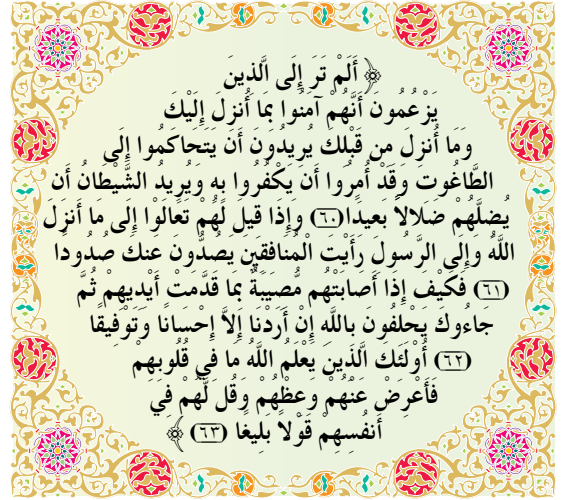 ﴿ أَلَمْ تَرَ إِلَى الَّذِينَ
يَزْعُمُونَ أَنَّهُمْ آمَنُوا بِمَا أُنزِلَ إِلَيْكَ
وَمَا أُنزِلَ مِن قَبْلِكَ يُرِيدُونَ أَن يَتَحَاكَمُوا إِلَى
الطَّاغُوتِ وَقَدْ أُمِرُوا أَن يَكْفُرُوا بِهِ وَيُرِيدُ الشَّيْطَانُ أَن
يُضِلَّهُمْ ضَلَالاً بَعِيدًا(٦٠) وَإِذَا قِيلَ لَهُمْ تَعَالَوْا إِلَى مَا أَنزَلَ
اللَّهُ وَإِلَى الرَّسُولِ رَأَيْتَ الْمُنَافِقِينَ يَصُدُّونَ عَنكَ صُدُودًا
(٦١) فَكَيْفَ إِذَا أَصَابَتْهُم مُّصِيبَةٌ بِمَا قَدَّمَتْ أَيْدِيهِمْ ثُمَّ
جَاءُوكَ يَحْلِفُونَ بِاللَّهِ إِنْ أَرَدْنَا إِلاَّ إِحْسَانًا وَتَوْفِيقًا
(٦٢) أُوْلَئِكَ الَّذِينَ يَعْلَمُ اللَّهُ مَا فِي قُلُوبِهِمْ
فَأَعْرِضْ عَنْهُمْ وَعِظْهُمْ وَقُل لَّهُمْ فِي
أَنفُسِهِمْ قَوْلاً بَلِيغًا (٦٣) ﴾